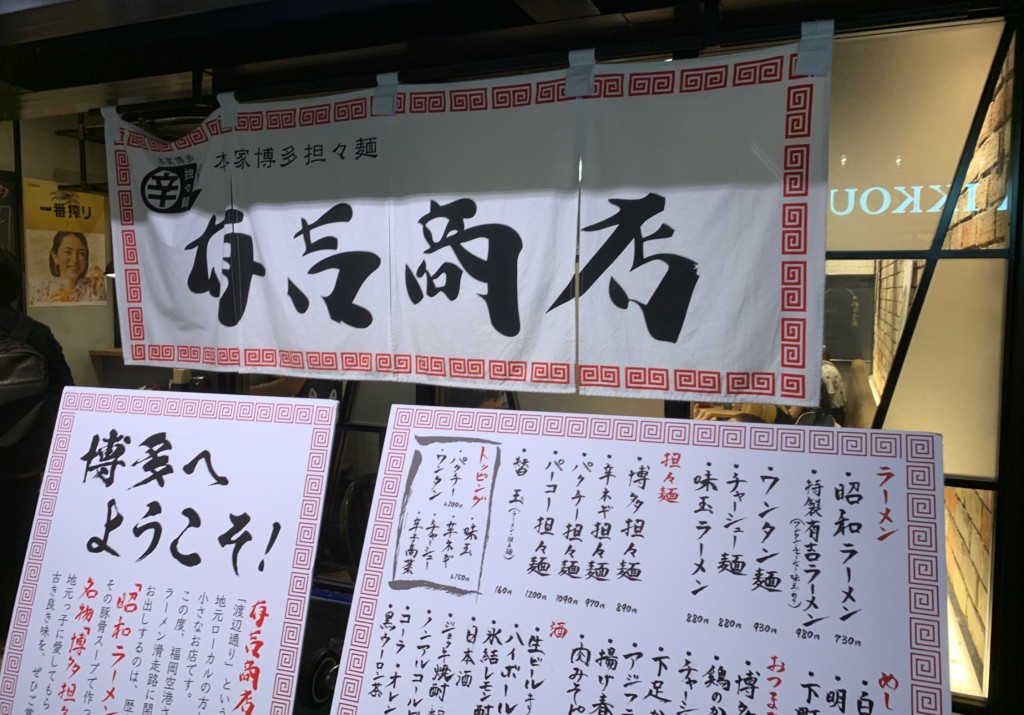 本家博多担々麺
本家博多
辛
担々
有吉商店
一番搾り
IKKOU
博多へ
ようこそ！
有吉商店
「渡辺通り」という
地元ローカルの方
小さなお店です。
この度、福岡空港さ
ラーメン滑走路に開
お出しするのは、歴
「昭和ラーメン
その豚骨スープで作っ
名物「博多担々
地元っ子に愛してもら
古き良き味を、ぜひご賞
ラーメン
・昭和ラーメン 730円
・特製有吉ラーメン 980円
・ワンタン麺 930円
・チャーシュー麺 880円
・味玉ラーメン 880円
担々麺
・博多担々麺 890円
・辛ネギ担々麺 970円
・パクチー担々麺 1090円
・パーコー担々麺 1200円
・替玉 160円
トッピング
・パクチー
・ワンタン
各200円
・味玉
・辛ネギ
・チャーシュー
・辛子高菜
各150円
めし
・白
・明
・下町
おつま
・博多
・鶏のか
・チャーシ
・下足か
・アジフラ
・揚げ春
・肉みそピ
酒
・生ビール
・ハイボール
・氷結レモン酎
・日本酒
・ジョッキ焼酎
・ノンアルコール
・コーラ・オレン
・黒ウーロン茶